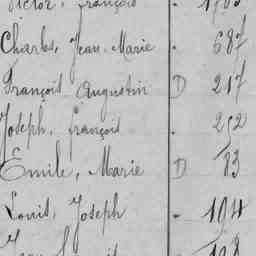 Victor, françois . 1763
Charles, Jean-Marie . 687
François Augustin D 217
Joseph, françois . 252
Emile, Marie D 83
Louis, Joseph - 194
128